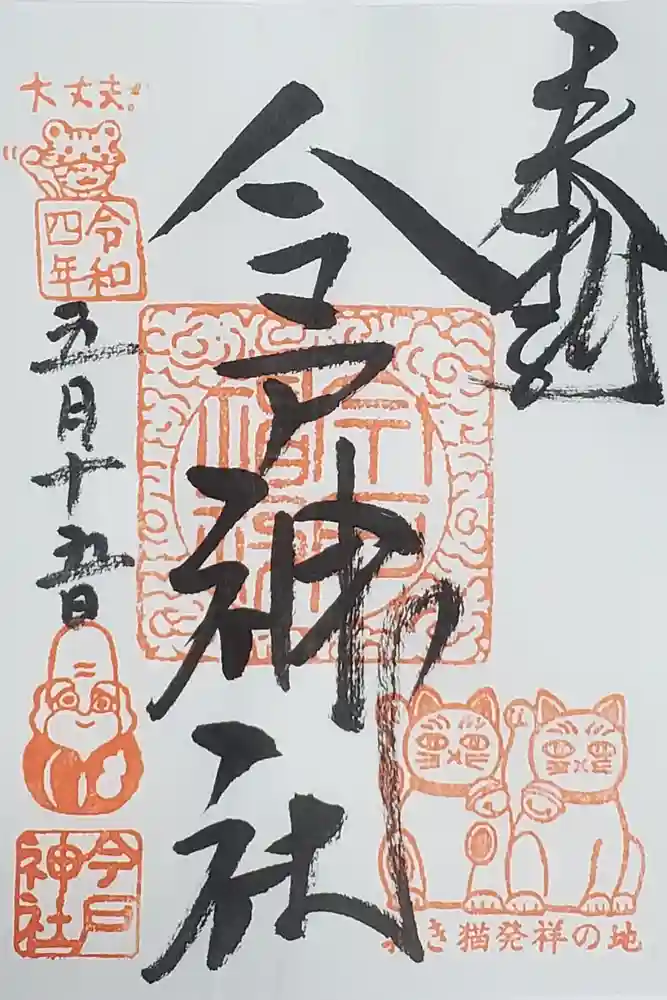 奉拝
今戸神社
招き猫発祥の地
大丈夫!
令和
四年
五月十五日
今戸
神社